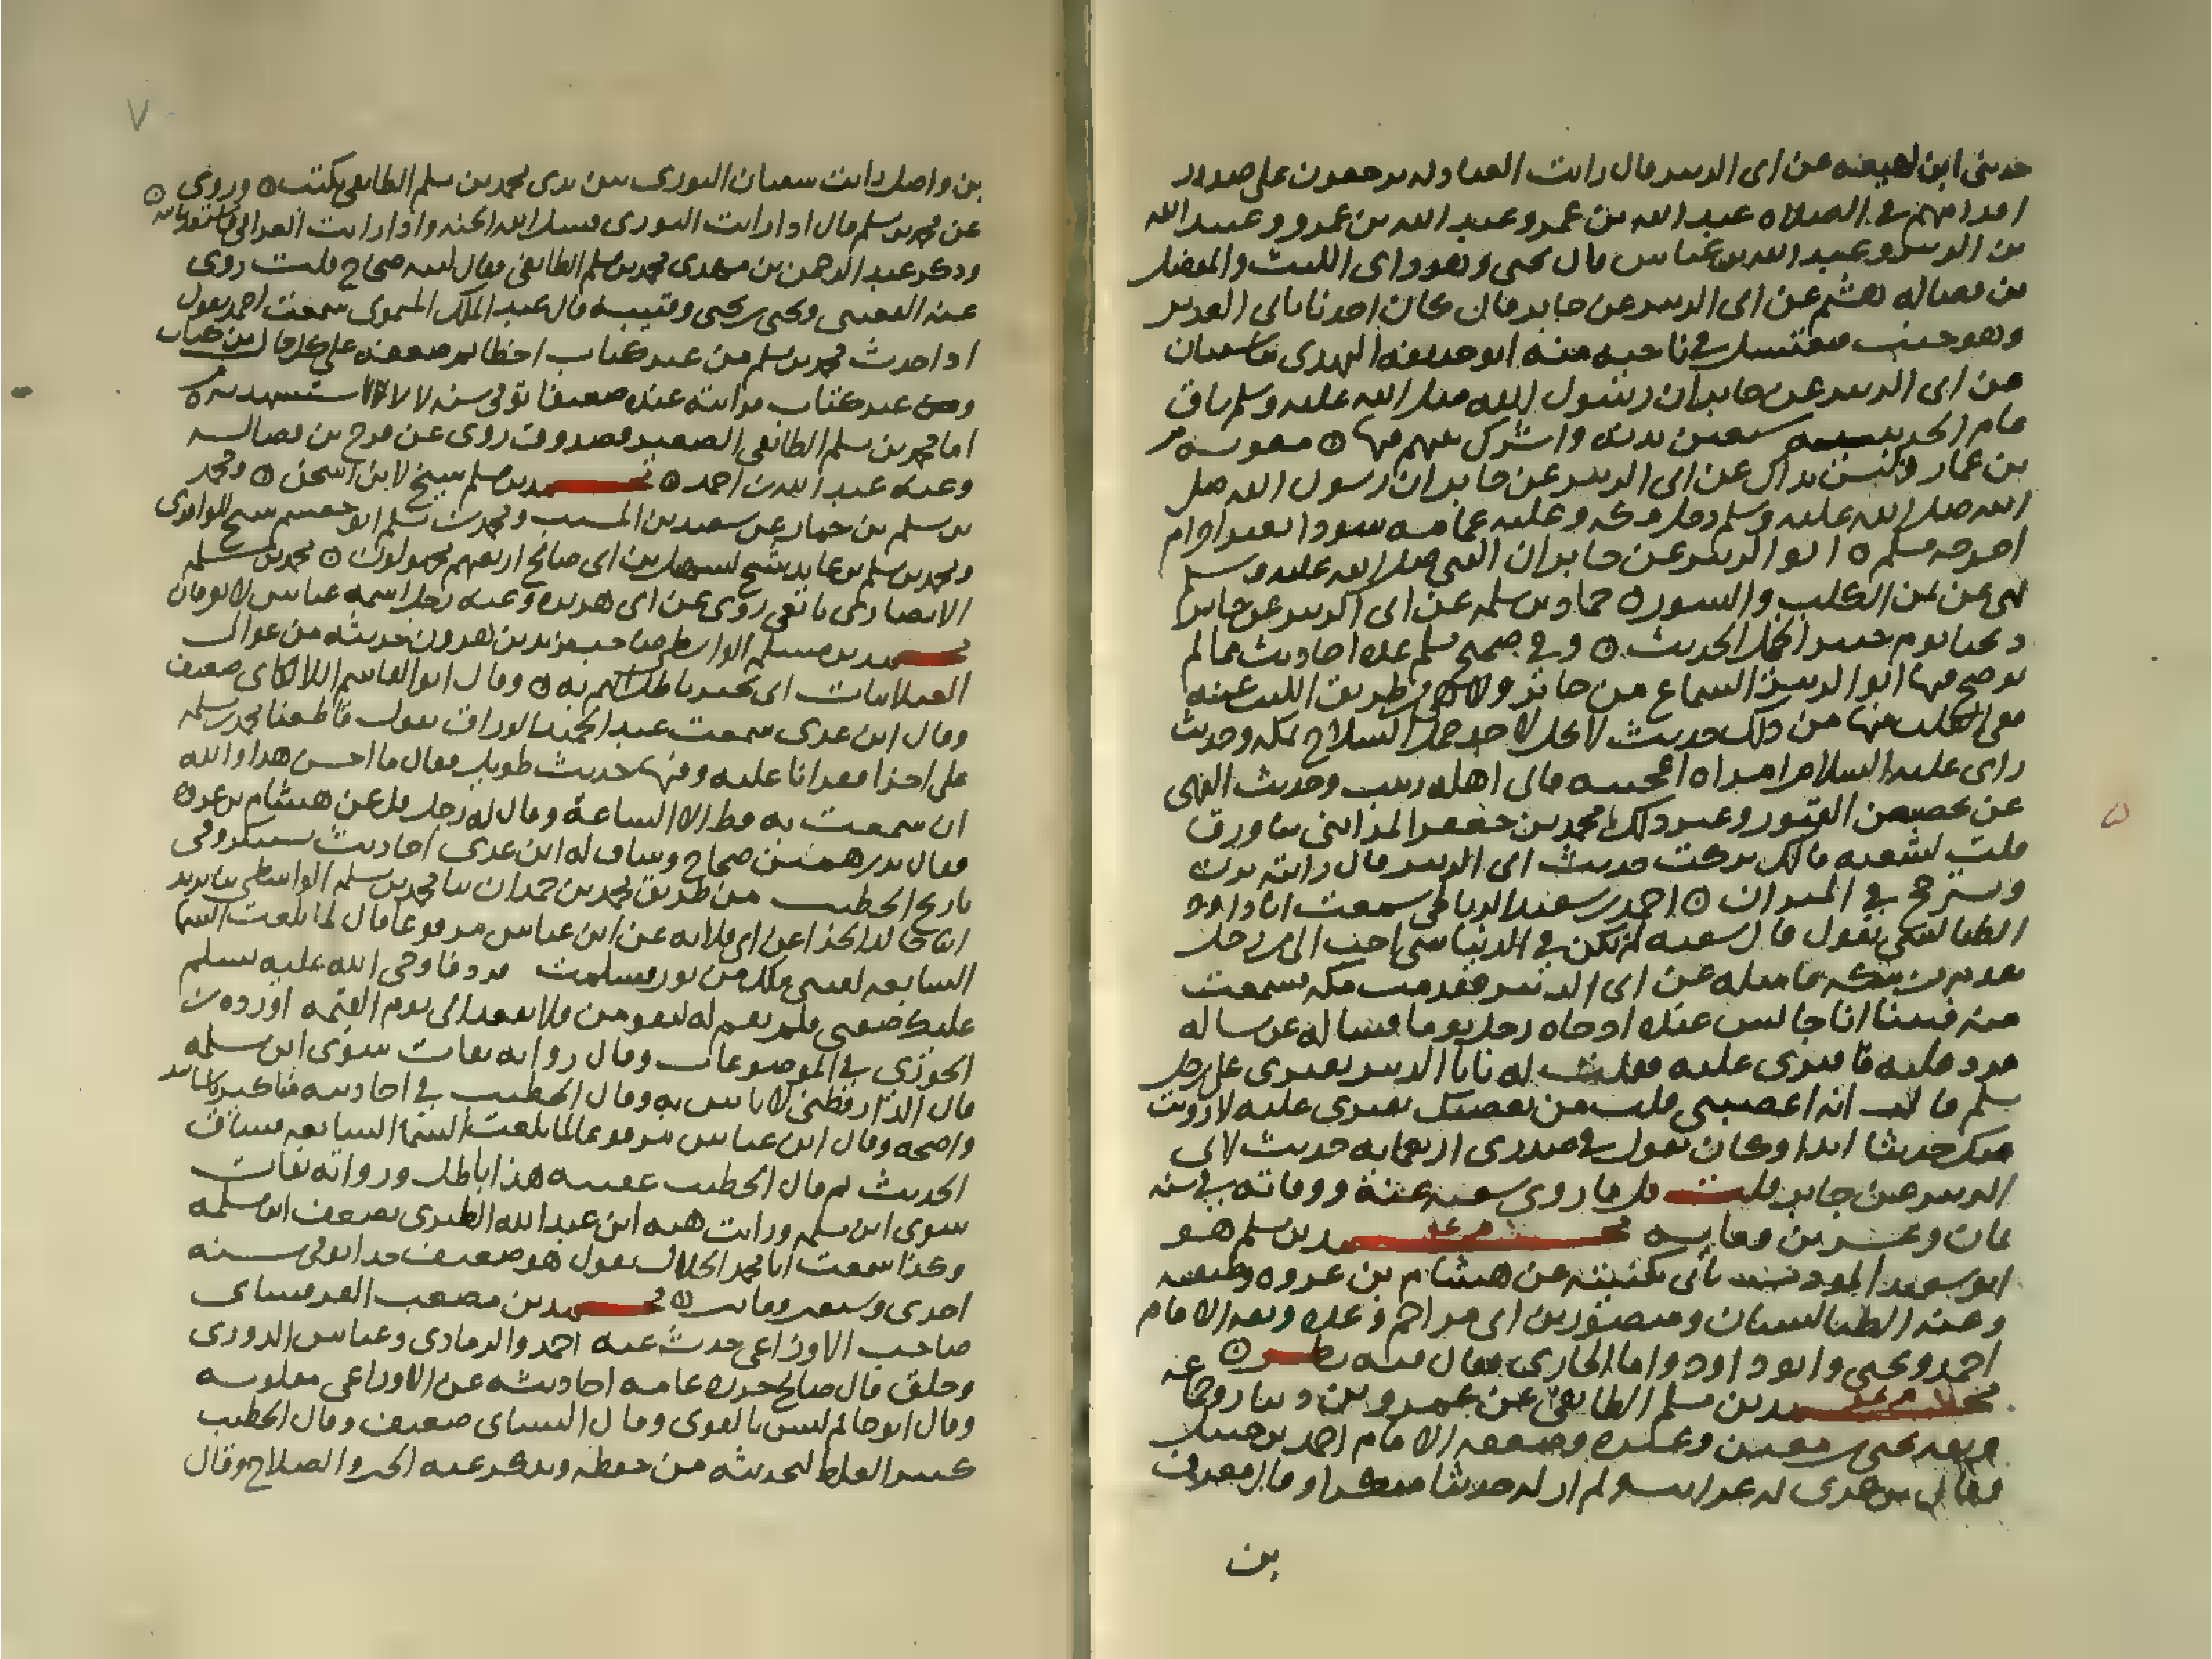 حدثني ابن لهيعة عن ابي الزبير قال رايت العبادلة يرجعون على صدور
اقدامهم في الصلاه عبد الله بن عمر وعبد الله بن عمرو وعبد الله
بن الزبير وعبد الله بن عباس قال يحيى وهو راي الليث والمفضل
بن فضاله هشيم عن ابي الزبير عن جابر قال كان احدنا ياتي الغدير
وهو جنب فيغتسل في ناحيه منه ابو حذيفه النهدي سفيان
عن ابي الزبير عن جابر ان رسول الله صلى الله عليه وسلم ساق
عام الحديبيه سبعين بدنه واشرك بينهم فيها معويه
بن عمار عن ابي الزبير عن جابر ان رسول الله صلى
الله صلى الله عليه وسلم دخل مكه وعليه عمامه سودا بغير احرام
اخرجه مسلم ابو الزبير عن جابر ان النبي صلى الله عليه وسلم
نهى عن ثمن الكلب والسنور حماد بن سلمه عن ابي الزبير عن جابر
ذبحنا يوم خيبر الخيل الحديث وفي صحيح مسلم عده احاديث مما لم
يوضح فيها ابو الزبير السماع من جابر ولا من طريق الليث عنه
ففي القلب منها من ذلك حديث لا يحل لاحد حمل السلاح بمكه وحديث
راى عليه السلام امراه اعجبته فاتى اهله زينب وحديث النهي
عن تجصيص القبور وغير ذلك محمد بن جعفر المدايني ورقا
قلت لشعبه مالك تركت حديث ابي الزبير قال رايته يزن
ويسترجح في الميزان احمد بن سعيد الرباطي سمعت ابا داود
الطيالسي يقول قال شعبه لم يكن في الدنيا شي احب الي من رجل
يقدم من مكه فاساله عن ابي الزبير فقدمت مكه فسمعت
منه فبينا انا جالس عنده اذ جاه رجل يوما فساله عن مساله
فرد عليه فافترى عليه فقلت له يا ابا الزبير تفتري على رجل
مسلم قال انه اغضبني قلت من يغضبك تفتري عليه لا رويت
عنك حديثا ابدا وكان يقول في صدري اربعمايه حديث لابي
الزبير عن جابر قلت بل ما روى شعبه عنه ووفاته في سنه
ثمان وعشرين ومايه محمد بن مسلم هو
ابو سعيد المودب ياتي بكنيته عن هشام بن عروه وطبقته
وعنه الطيالسيان ومنصور بن ابي مزاحم وعده وثقه الامام
احمد ويحيى وابو داود واما البخاري فقال فيه نظر
محمد بن مسلم الطايفي عن عمرو بن دينار وجماعه
وثقه يحيى بن معين وغيره وضعفه الامام احمد بن حنبل
وقال بن عدي له غرايب ولم ار له حديثا منكرا وقال معروف
بن
٧
بن واصل رايت سفيان الثوري بين يدي محمد بن مسلم الطايفي يكتب وروي
عن محمد بن مسلم قال اذا رايت الثوري فسل الله الجنه واذا رايت العراقي
وذكر عبد الرحمن بن مهدي محمد بن مسلم الطايفي فقال كتبه صحاح قلت روى
عنه القعنبي ويحيى بن يحيى وقتيبه قال عبد الملك الميموني سمعت احمد يقول
اذا حدث محمد بن مسلم من غير كتاب اخطا ثم ضعفه على كل حال من كتاب
ومن غير كتاب فرايته عنده ضعيفا توفي سنه
اما محمد بن مسلم الطايفي الصغير فصدوق روى عن فرج بن فضاله
وعنه عبد الله بن احمد محمد بن مسلم شيخ لابن اسحق ومحمد
بن مسلم بن جماز عن سعيد بن المسيب ومحمد بن مسلم ابو جعشم شيخ للواقدي
ومحمد بن مسلم بن عايذ شيخ لسهيل بن ابي صالح اربعتهم مجهولون محمد بن مسلمه
الانصاري تابعي روى عن ابي هريره وعنه رجل اسمه عباس لا يعرفان
محمد بن مسلمه الواسطي صاحب يزيد بن هرون حديثه من عوالي
الغيلانيات اتى بخبر باطل اتهم به وقال ابو القاسم اللالكاي ضعيف
وقال ابن عدي سمعت عبد الحميد الوراق يقول قاطعنا محمد بن مسلمه
على اجزا فقرانا عليه وفيها حديث طويل فقال ما احسن هذا والله
ان سمعت به قط الا الساعة وقال له رجل قل عن هشام بن عروه
فقال بدرهمين صحاح وساق له ابن عدي احاديث تستنكر وفي
تاريخ الخطيب من طريق محمد بن حمدان ثنا محمد بن مسلمه الواسطي ثنا يزيد
انا خالد الحذا عن ابي قلابه عن ابن عباس مرفوعا قال لما بلغت السما
السابعه لقيني ملك من نور فسلمت فرد فاوحى الله عليه يسلم
عليك صفيي فلم تقم له لتقومن فلا تقعد الى يوم القيمه اورده بن
الجوزي في الموضوعات وقال رواته ثقات سوى ابن سلمه
قال الدارقطني لا باس به وقال الخطيب في احاديثه مناكير باسانيد
واضحه وقال ابن عباس مرفوعا لما بلغت السما السابعه فساق
الحديث ثم قال الخطيب عقيبه هذا باطل ورواته ثقات
سوى ابن مسلمه ورايت هبه ابن عبد الله الطبري يضعف ابن مسلمه
وكذا سمعت ابا محمد الخلال يقول هو ضعيف جدا توفي سنه
احدى وسبعين ومايتين محمد بن مصعب القرقساي
صاحب الاوزاعي حدث عنه احمد والرمادي وعباس الدوري
وخلق قال صالح جزره عامه احاديثه عن الاوزاعي مقلوبه
وقال ابو حاتم ليس بالقوي وقال النساي ضعيف وقال الخطيب
كثير الغلط لتحديثه من حفظه ويذكر عنه الخير والصلاح وقال